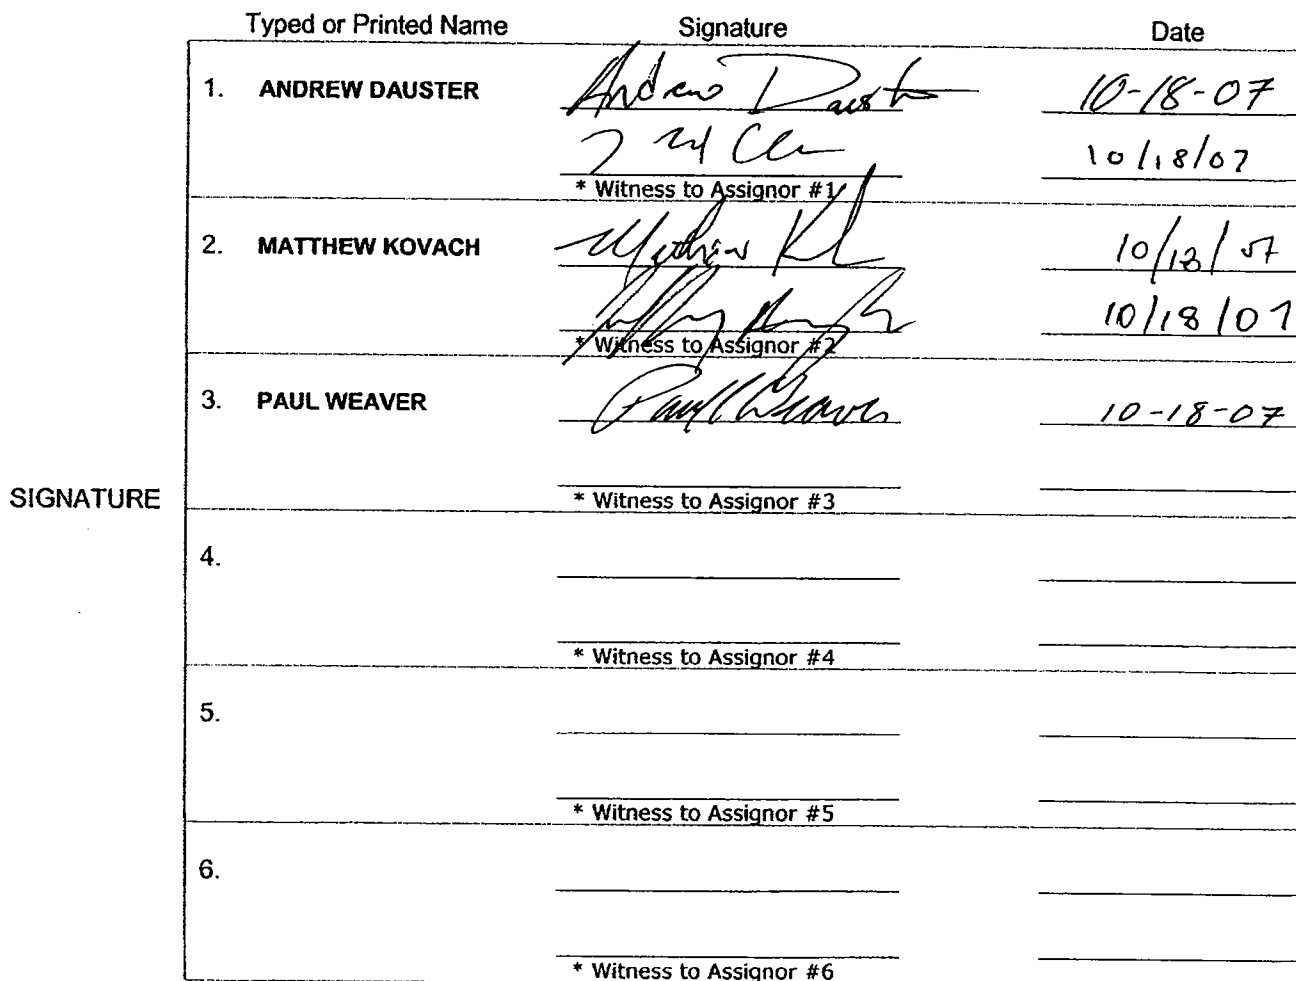 Typed or Printed Name Signature Date
1. ANDREW DAUSTER Andrew Dauster 10-18-07
10/18/07
* Witness to Assignor #1
2. MATTHEW KOVACH 10/18/07
10/18/07
* Witness to Assignor #2
3. PAUL WEAVER Paul Weaver 10-18-07
SIGNATURE
* Witness to Assignor #3
4.
* Witness to Assignor #4
5.
* Witness to Assignor #5
6.
* Witness to Assignor #6